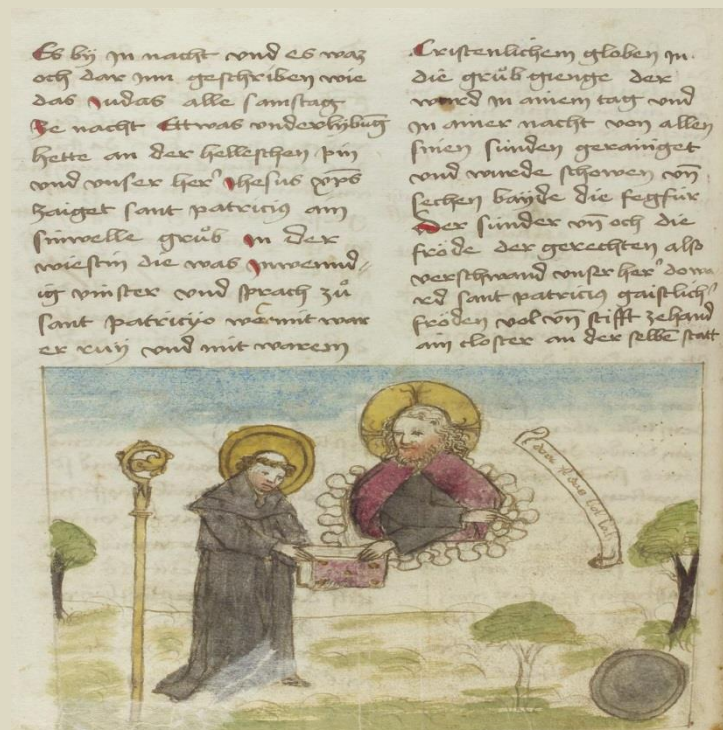 Es bÿ In nacht vnd es waz
och dar Inn geschriben wie
das Judas alle samstag
ze nacht Ettwas vnderlybūg
hette an der helleschen pin
vnd vnser her' Jhesus xp̄s
zaiget sant patriciꝰ ain
sinwelle grůb In der
wiestin die was Inwennd
ig vinster vnd sprach zů
sant patricÿo wer mit war
er ruÿ vnd mit warem
Cristenlichem globen In
die grůb gienge der
wurd In ainem tag vnd
In ainer nacht von allen
sinen sünden gerainget
vnd wurde schowen vn̄
sechen baÿde die fegfür
Der sünder vn̄ och die
fröde der gerechten also
verschwand vnser her' do wa
rd sant patriciꝰ gaistlich'
fröden vol vn̄ stifft zehand
ain closter an der selbē statt